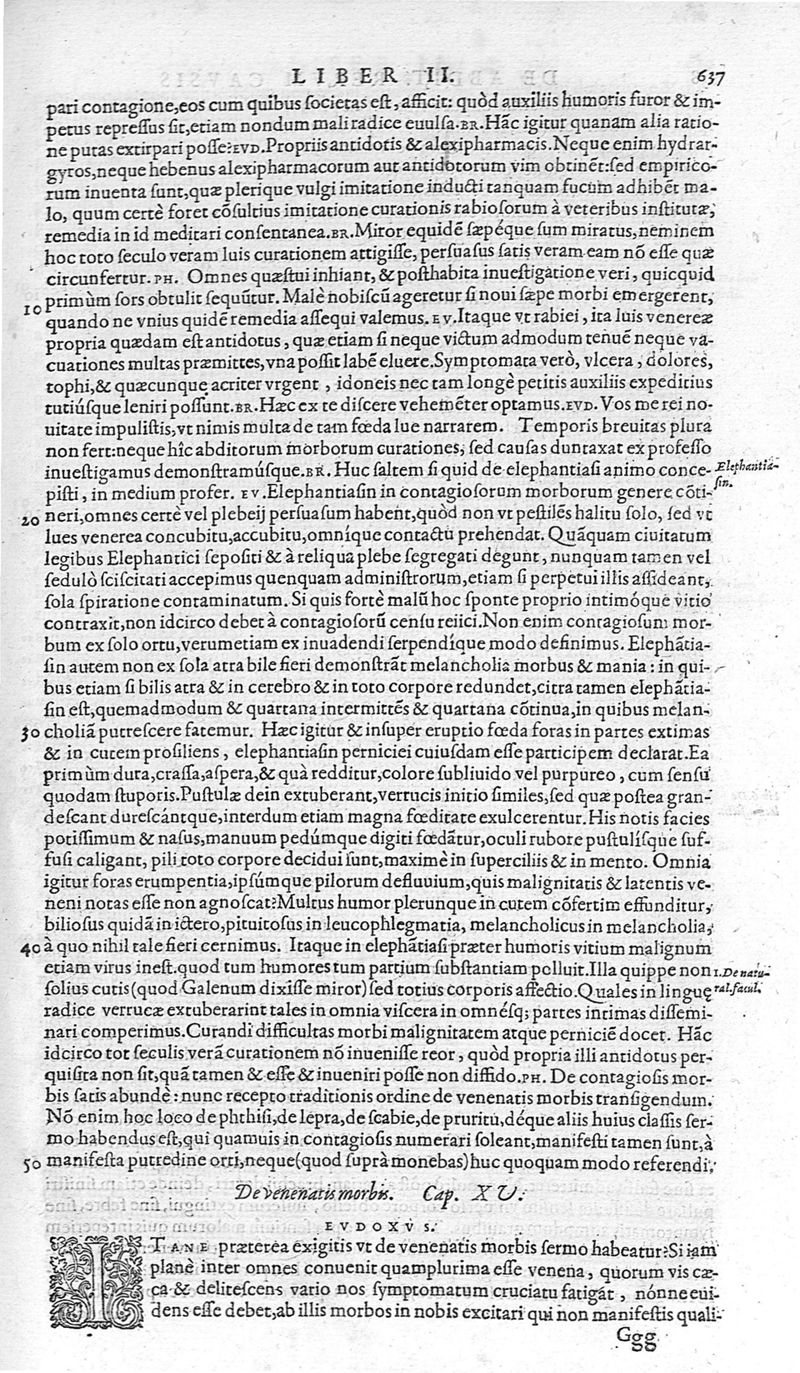 LIBER II. 637
pari contagione,eos cum quibus societas est, afficit: quòd auxiliis humoris furor & im-
petus repressus sit,etiam nondum mali radice euulsa.BR.Hāc igitur quanam alia ratio-
ne putas extirpari posse?EVD.Propriis antidotis & alexipharmacis. Neque enim hydrar-
gyros,neque hebenus alexipharmacorum aut antidotorum vim obtinēt:sed empirico-
rum inuenta sunt,quæ plerique vulgi imitatione inducti tanquam fucum adhibēt ma-
lo, quum certè foret cōsultius imitatione curationis rabiosorum à veteribus institutæ,
remedia in id meditari consentanea.BR.Miror equidē sæpéque sum miratus,neminem
hoc toto seculo veram luis curationem attigisse, persuasus satis veram eam nō esse quæ
circunfertur.PH. Omnes quæstui inhiant, & posthabita inuestigatione veri, quicquid
10 primùm sors obtulit sequūtur. Malè nobiscū ageretur si noui sæpe morbi emergerent,
quando ne vnius quidē remedia assequi valemus. EV.Itaque vt rabiei , ita luis venereæ
propria quædam est antidotus , quæ etiam si neque victum admodum tenuē neque va-
cuationes multas præmittes, vna possit labē eluere.Symptomata verò, vlcera , dolores,
tophi,& quæcunque acriter vrgent , idoneis nec tam longè petitis auxiliis expeditius
tutiúsque leniri possunt.BR.Hæc ex te discere vehemēter optamus.EVD. Vos me rei no-
uitate impulistis,vt nimis multa de tam fœda lue narrarem. Temporis breuitas plura
non fert:neque hîc abditorum morborum curationes, sed causas duntaxat ex professo
inuestigamus demonstramúsque.BR. Huc saltem si quid de elephantiasi animo conce-
Elephantia-
sin.
pisti , in medium profer. EV.Elephantiasin in contagiosorum morborum genere cōti-
20 neri,omnes certè vel plebeij persuasum habent,quòd non vt pestilēs halitu solo, sed vt
lues venerea concubitu,accubitu,omníque contactu prehendat. Quāquam ciuitatum
legibus Elephantici sepositi & à reliqua plebe segregati degunt, nunquam tamen vel
sedulò sciscitati accepimus quenquam administrorum,etiam si perpetui illis assideant,
sola spiratione contaminatum. Si quis fortè malū hoc sponte proprio intimóque vitio
contraxit,non idcirco debet à contagiosorū censu reiici.Non enim contagiosum mor-
bum ex solo ortu, verumetiam ex inuadendi serpendíque modo definimus. Elephātia-
sin autem non ex sola atra bile fieri demonstrāt melancholia morbus & mania : in qui-
bus etiam si bilis atra & in cerebro & in toto corpore redundet,citra tamen elephātia-
sin est,quemadmodum & quartana intermittēs & quartana cōtinua,in quibus melan-
30 choliā putrescere fatemur. Hæc igitur & insuper eruptio fœda foras in partes extimas
& in cutem prosiliens , elephantiasin perniciei cuiusdam esse participem declarat.Ea
primùm dura,crassa,aspera,& quà redditur,colore subliuido vel purpureo , cum sensu
quodam stuporis.Pustulæ dein extuberant,verrucis initio similes,sed quæ postea gran-
descant durescántque,interdum etiam magna fœditate exulcerentur. His notis facies
potissimum & nasus, manuum pedúmque digiti fœdātur,oculi rubore pustulísque suf-
fusi caligant, pili toto corpore decidui sunt, maximè in superciliis & in mento. Omnia
igitur foras erumpentia,ipsúmque pilorum defluuium,quis malignitatis & latentis ve-
neni notas esse non agnoscat?Multus humor plerunque in cutem cōfertim effunditur,
biliosus quidā in ictero,pituitosus in leucophlegmatia, melancholicus in melancholia,
40 à quo nihil tale fieri cernimus. Itaque in elephātiasi præter humoris vitium malignum
etiam virus inest.quod tum humores tum partium substantiam polluit.Illa quippe non
1.De natu-
ral.facul.
solius cutis (quod Galenum dixisse miror) sed totius corporis affectio.Quales in linguę
radice verrucæ extuberarint tales in omnia viscera in omnésq; partes intimas dissemi-
nari comperimus.Curandi difficultas morbi malignitatem atque perniciē docet. Hāc
idcirco tot seculis verā curationem nō inuenisse reor , quòd propria illi antidotus per-
quisita non sit,quā tamen & esse & inueniri posse non diffido.PH. De contagiosis mor-
bis satis abundè : nunc recepto traditionis ordine de venenatis morbis transigendum.
Nō enim hoc loco de phthisi,de lepra,de scabie,de pruritu,déque aliis huius classis ser-
mo habendus est,qui quamuis in contagiosis numerari soleant,manifesti tamen sunt,à
50 manifesta putredine orti,neque (quod suprà monebas) huc quoquam modo referendi.
De venenatis morbis. Cap. XV.
EVDOXVS.
ITANE præterea exigitis vt de venenatis morbis sermo habeatur?Si iam
planè inter omnes conuenit quamplurima esse venena , quorum vis cæ-
ca & delitescens vario nos symptomatum cruciatu fatigāt , nónne eui-
dens esse debet,ab illis morbos in nobis excitari qui non manifestis quali-
Ggg